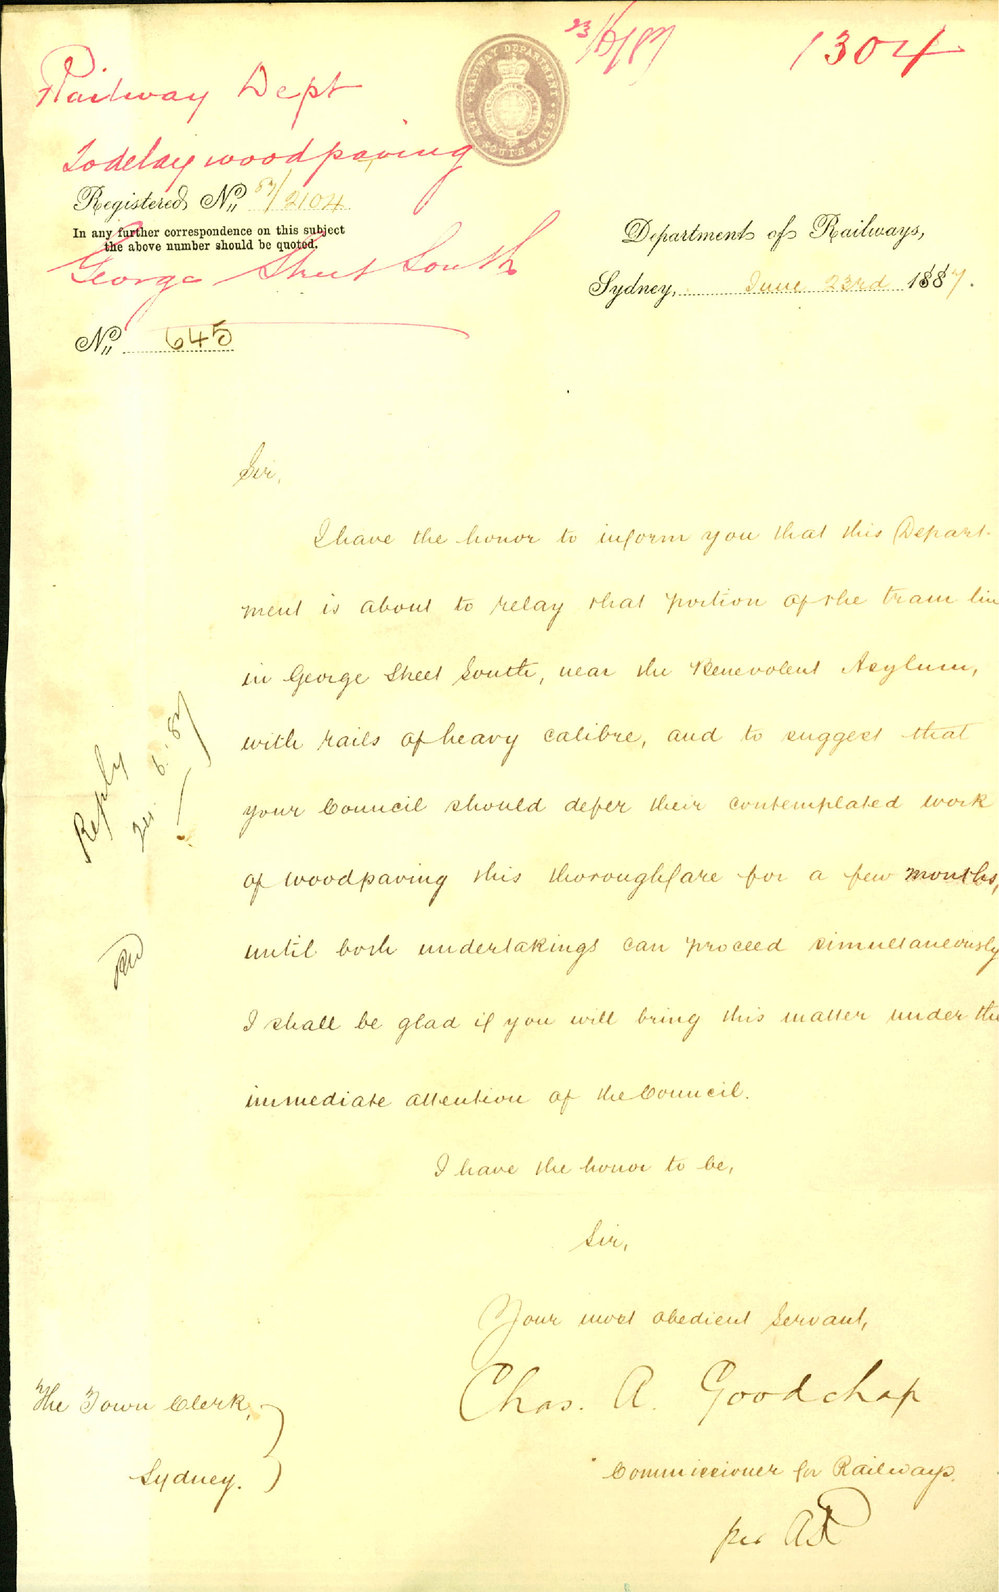 23/6/87
1304
Railway Dept
RAILWAY DEPARTMENT
NEW SOUTH WALES
To delay woodpaving
Registered No. 87/2104
In any further correspondence on this subject
the above number should be quoted.
George Street South
Department of Railways,
Sydney, June 23rd 1887.
No. 645
Sir,
I have the honor to inform you that this Depart-
ment is about to relay that portion of the tram lin
in George Street South, near the Benevolent Asylum,
with rails of heavy calibre, and to suggest that
your Council should defer their contemplated work
of woodpaving this thoroughfare for a few months,
until both undertakings can proceed simultaneously
I shall be glad if you will bring this matter under the
immediate attention of the Council.
Reply
24.6.87
I have the honor to be,
Sir,
Your most obedient Servant,
Chas. A. Goodchap
Commissioner for Railways.
per AR
The Town Clerk,
Sydney.